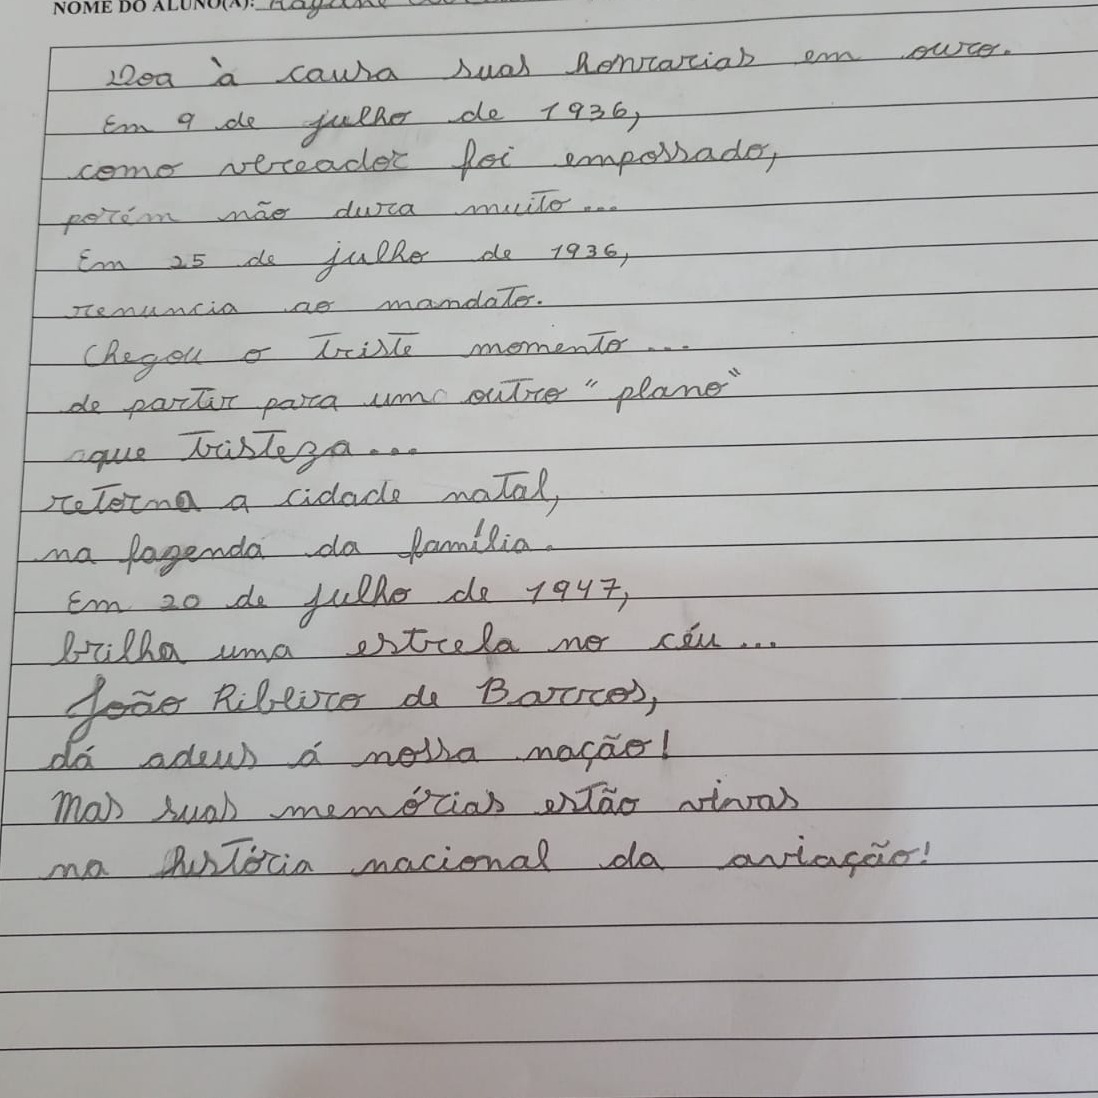 NOME DO ALUNO(A):
Doa à causa suas honrarias em ouro.
Em 9 de julho de 1936,
como vereador foi empossado,
porém não dura muito...
Em 25 de julho de 1936,
renuncia ao mandato.
Chegou o triste momento...
de partir para um outro "plano"
que tristeza...
retorna a cidade natal,
na fazenda da família.
Em 20 de julho de 1947,
brilha uma estrela no céu...
João Ribeiro de Barros,
dá adeus á nossa nação!
Mas suas memórias estão vivas
na história nacional da aviação!